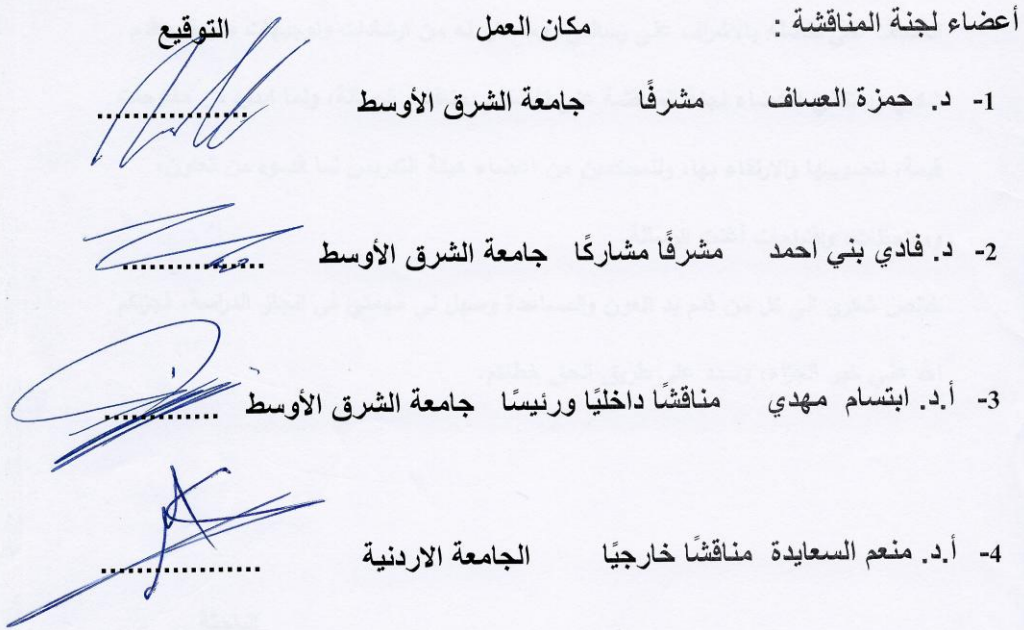 أعضاء لجنة المناقشة : مكان العمل التوقيع
1- د. حمزة العساف مشرفًا جامعة الشرق الأوسط ................
2- د. فادي بني احمد مشرفًا مشاركًا جامعة الشرق الأوسط ................
3- أ.د. ابتسام مهدي مناقشًا داخليًا ورئيسًا جامعة الشرق الأوسط ................
4- أ.د. منعم السعايدة مناقشًا خارجيًا الجامعة الاردنية ................